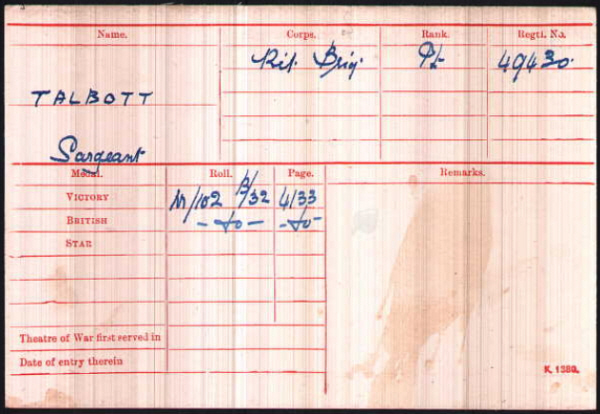 Name. Corps. Rank. Regtl. No.
Rif. Brig. Pt 49430.
TALBOTT
Sargeant
Medal. Roll. Page. Remarks.
VICTORY M/102 B/32 4133
BRITISH - do - - do -
STAR
Theatre of War first served in
Date of entry therein
K. 1380.